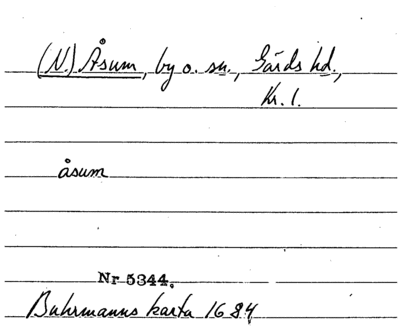 (N.) Åsum, by o. sn., Gärds hd.,
Kr. l.
åsum
Nr 5344.
Buhrmanns karta 1684